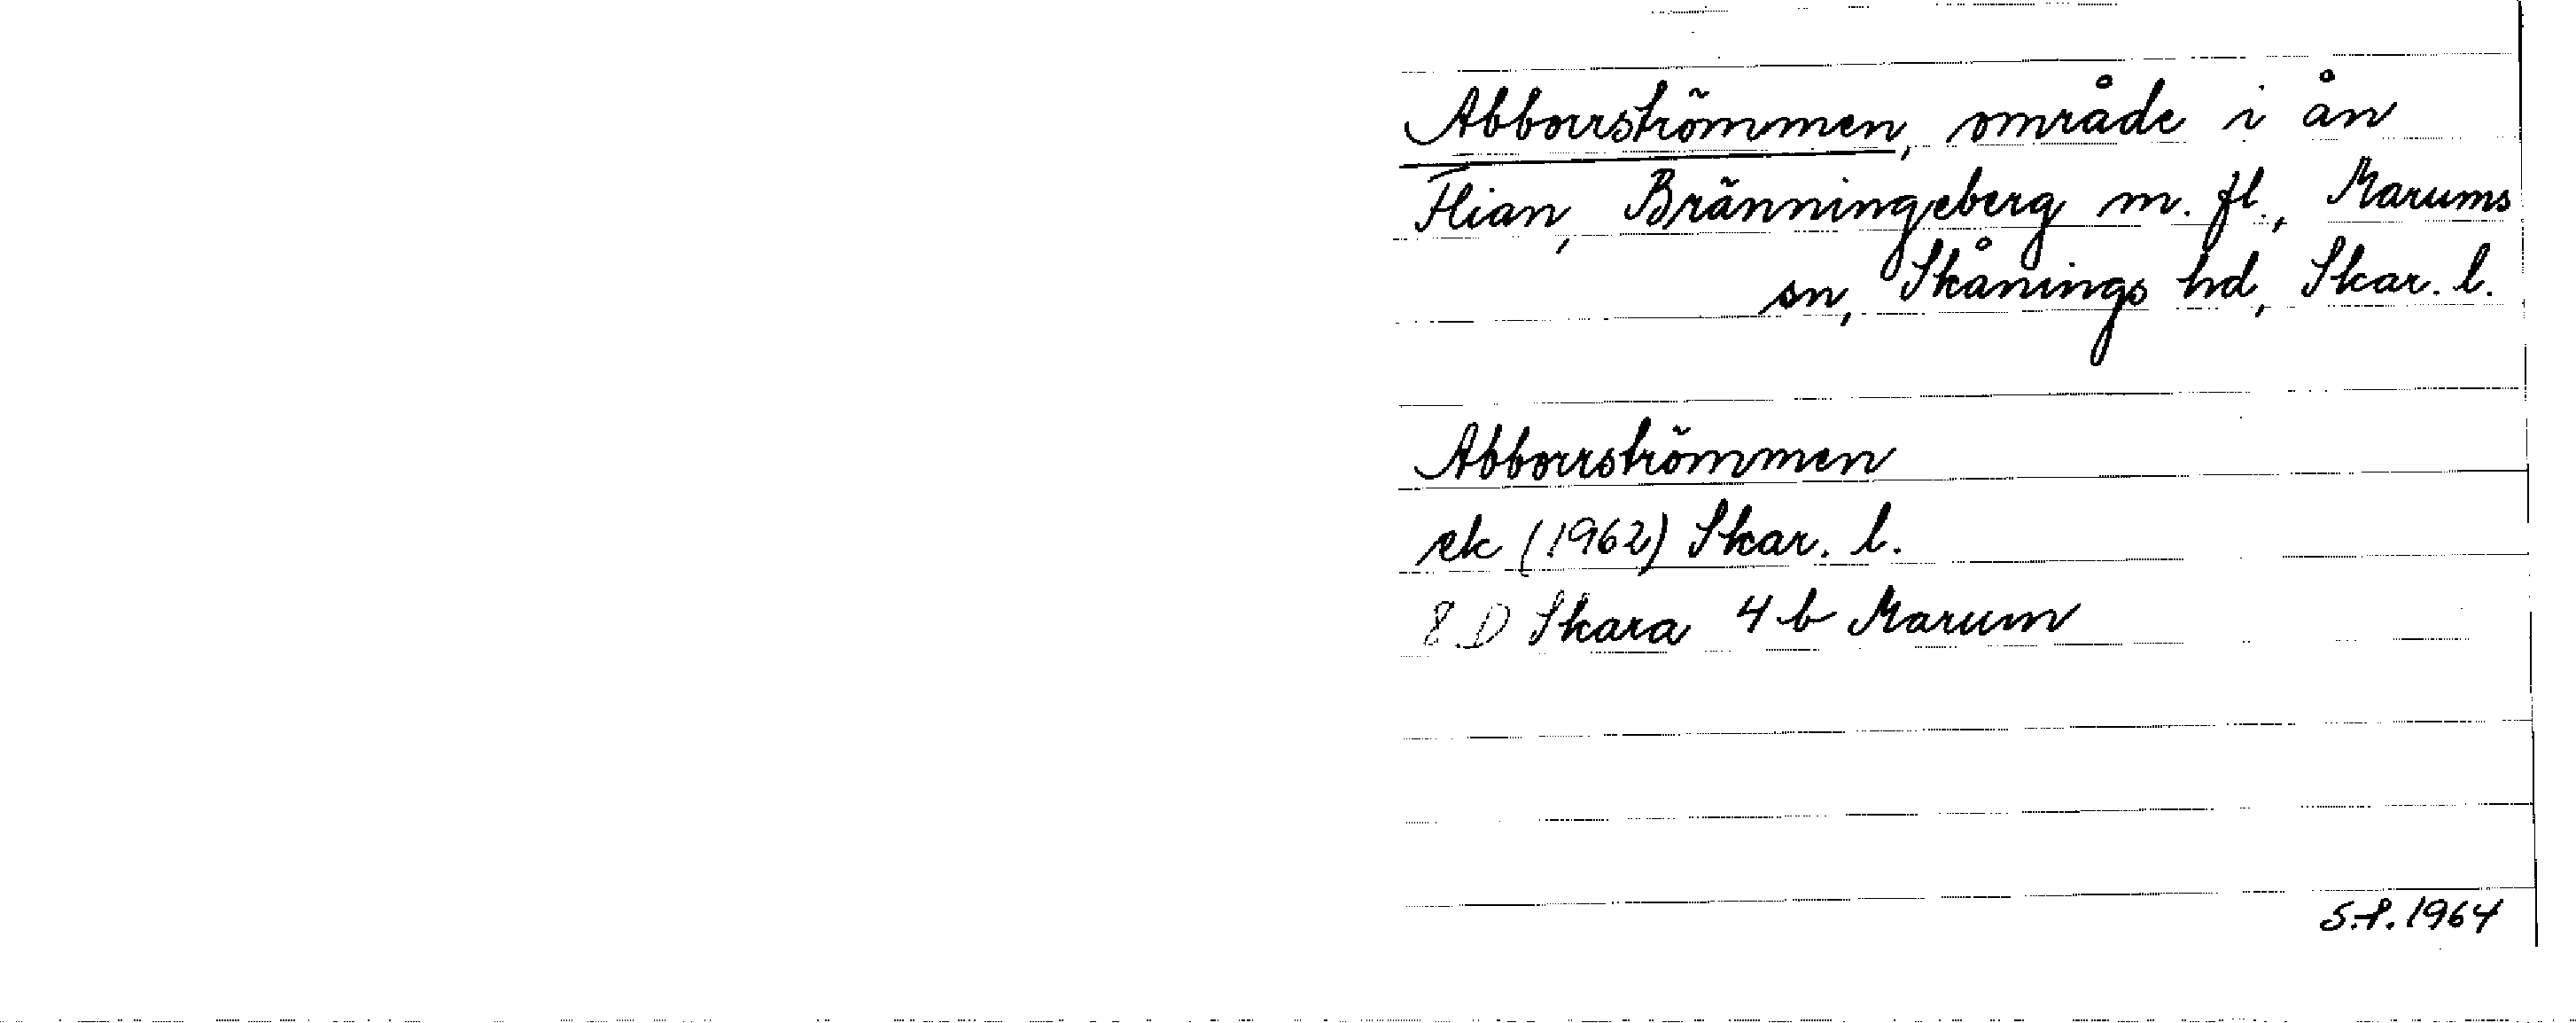 Abborrströmmen, område i ån
Flian, Bränningeberg m. fl., Marums
sn, Skånings hd, Skar. l.
Abborrströmmen
ek (1962) Skar. l.
8 D Skara 4 b Marum
1964